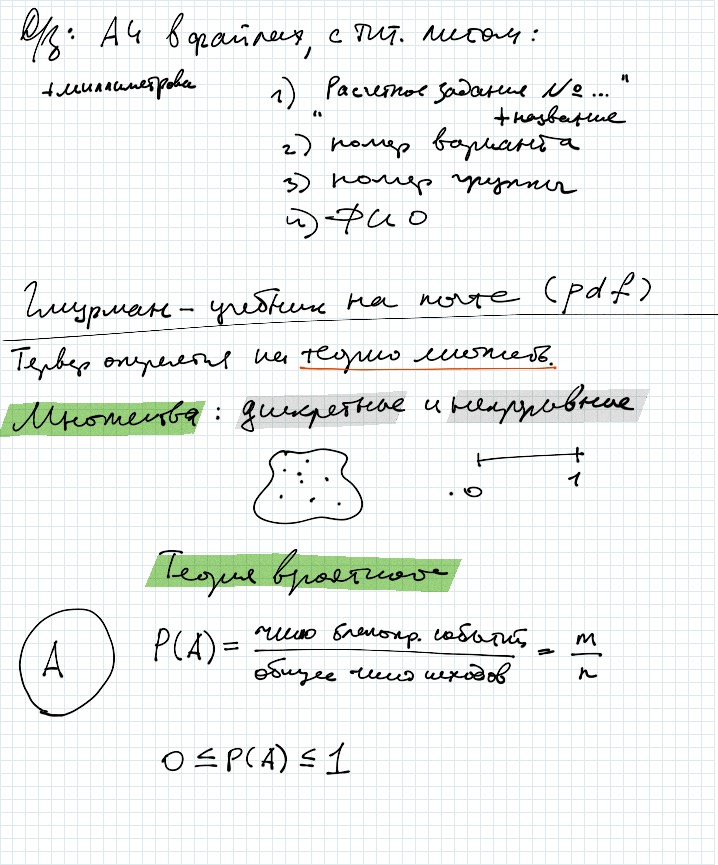 Д/з: А4 в файлах, с тит. листом:
+миллиметровка
1) "Расчетное задание № ..."
+название
2) номер варианта
3) номер группы
4) ФИО
Гмурман – учебник на почте (pdf)
Тервер опирается на теорию множеств.
Множества: дискретные и непрерывные
0 1
Теория вероятност
A
P(A) = число благопр. событий / общее число исходов = m / n
0 ≤ P(A) ≤ 1